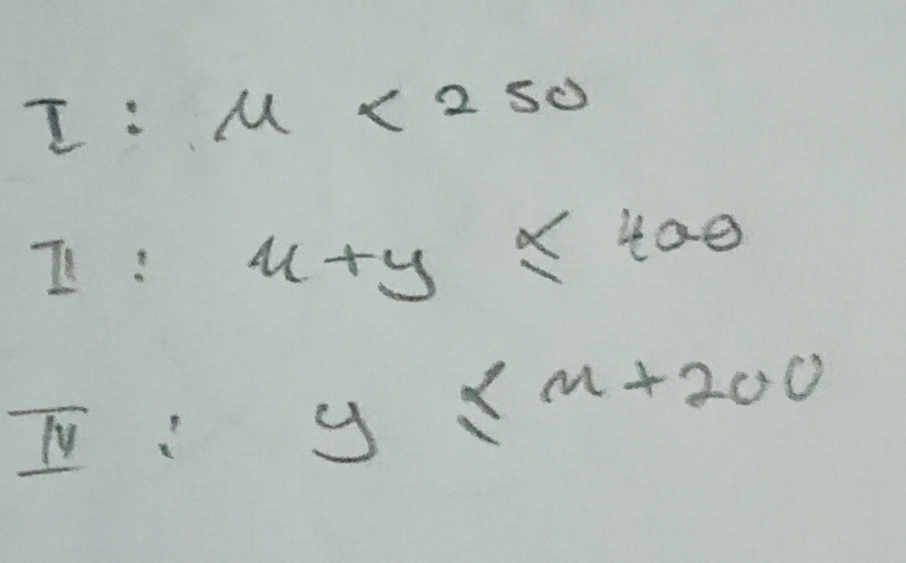 I : x < 250
II : x + y ≤ 400
IV : y ≤ x + 200